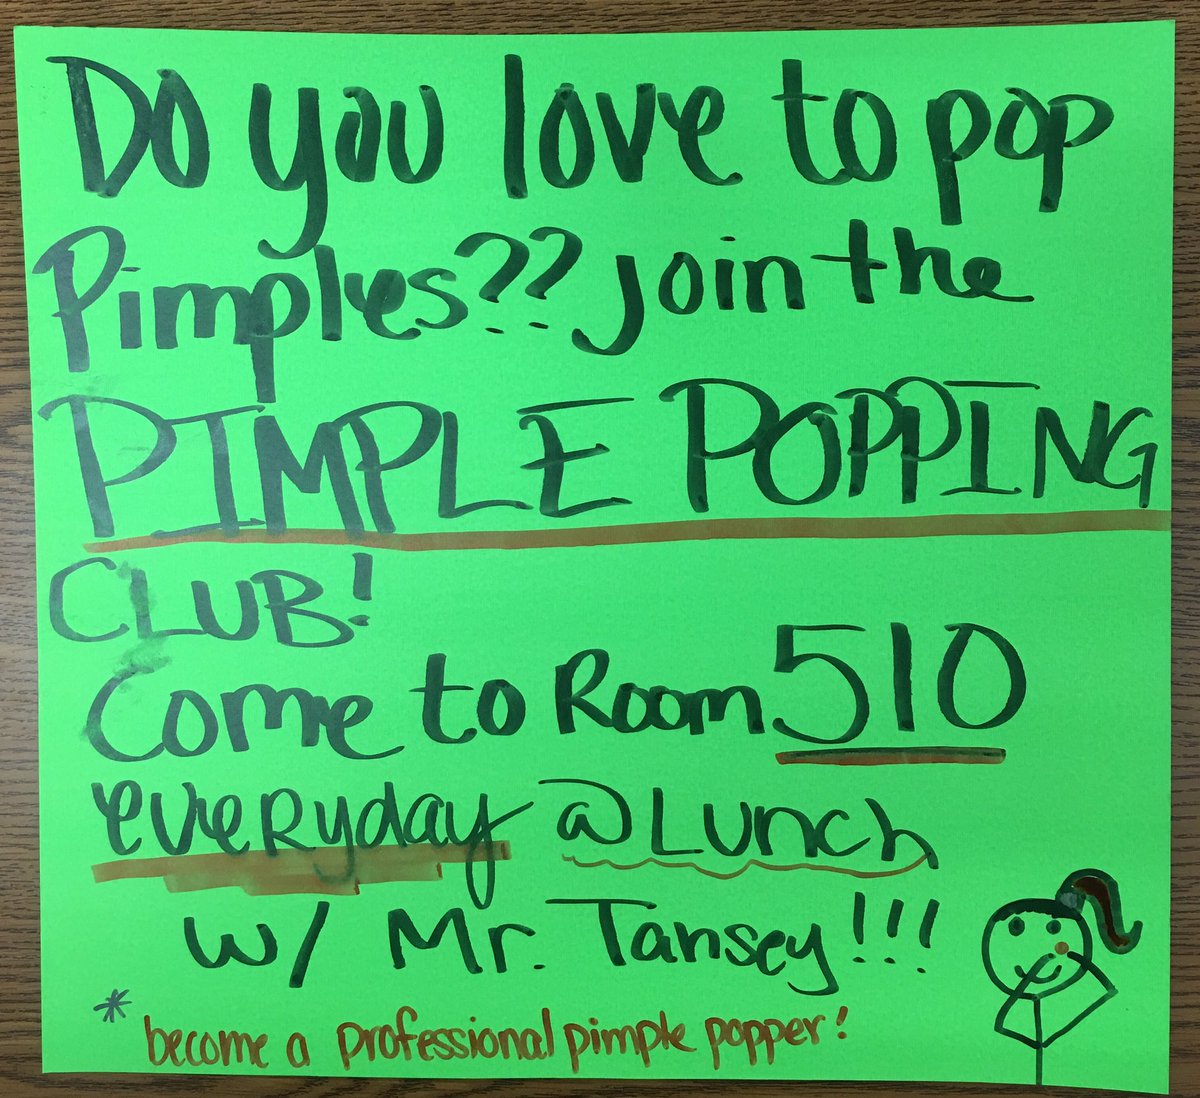 Do you love to pop
Pimples?? join the
PIMPLE POPPING
CLUB!
Come to Room 510
everyday @ Lunch
w/ Mr. Tansey!!!
* become a professional pimple popper!